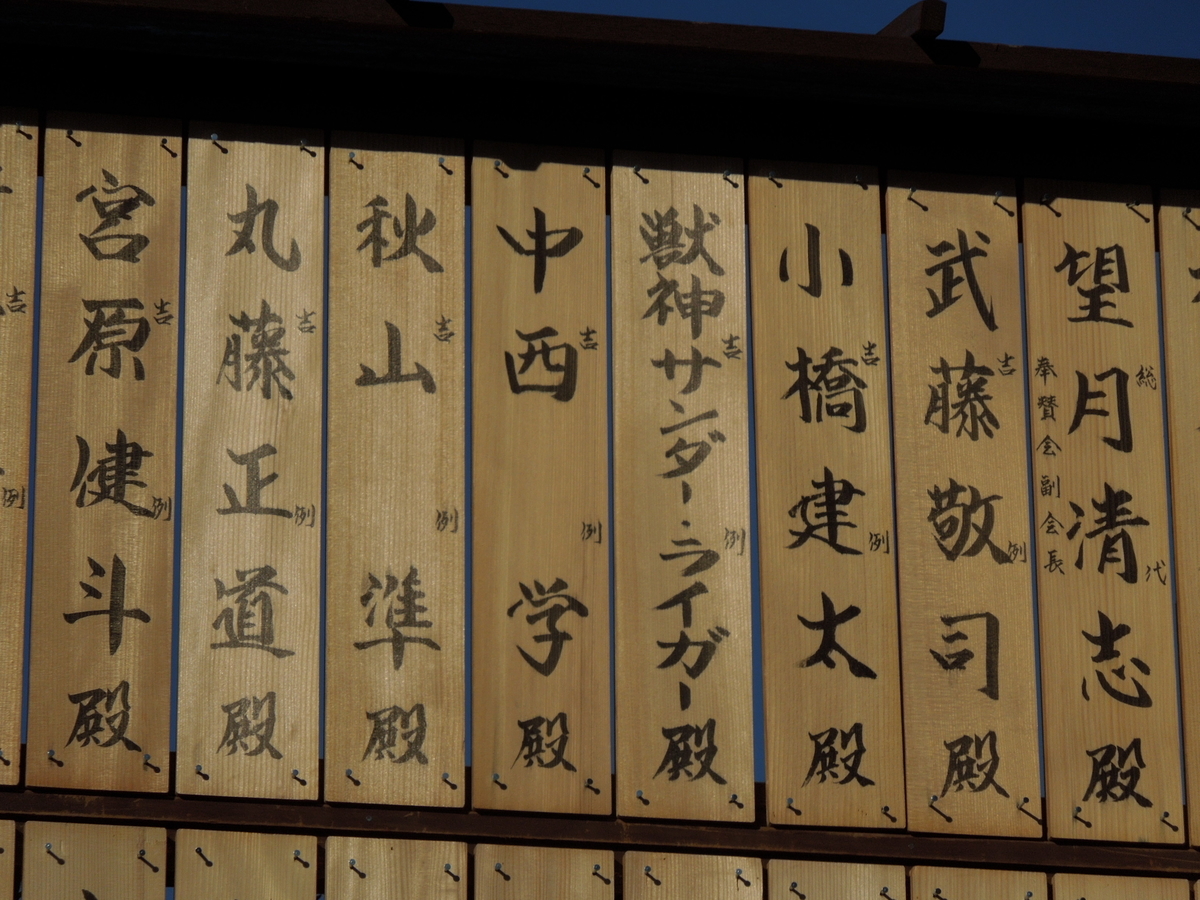 望月清志殿
総代
奉賛会副会長
武藤敬司殿
吉例
小橋建太殿
吉例
獣神サンダー・ライガー殿
吉例
中西学殿
吉例
秋山準殿
吉例
丸藤正道殿
吉例
宮原健斗殿
吉例
吉例